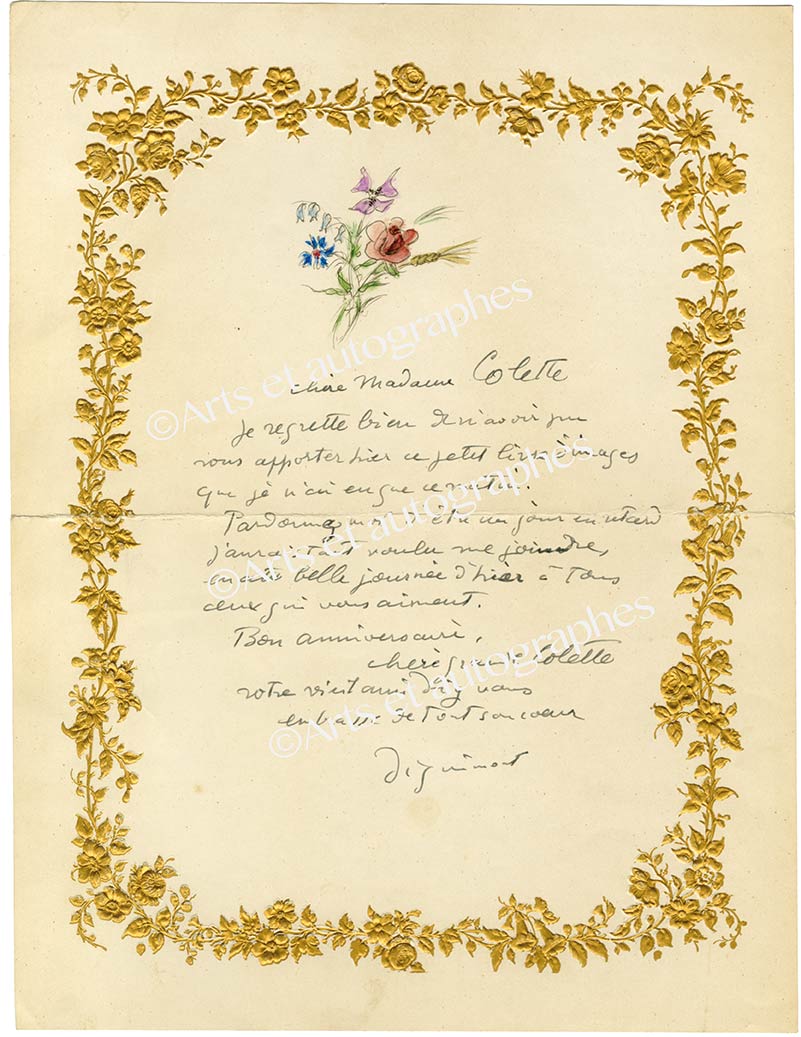 chère Madame Colette
Je regrette bien de n'avoir pu
vous apporter hier ce petit livre d'images
que je n'ai eu que ce matin.
Pardonnez moi d'être un jour en retard
j'aurais tant voulu me joindre,
en cette belle journée d'hier à tous
ceux qui vous aiment.
Bon anniversaire,
chère grande Colette
votre vieil ami Dig vous
embrasse de tout son coeur
Dignimont
©Arts et autographes
©Arts et autographes
©Arts et autographes